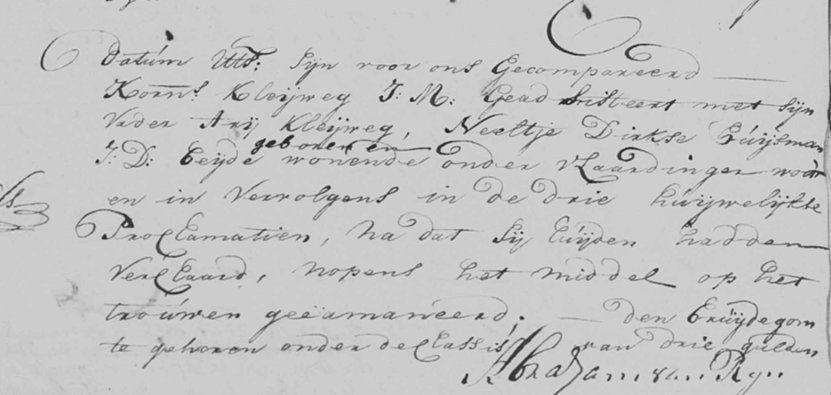 Datúm UtS: Sijn voor ons Gecompareerd
Korns. Kleijweg J: M: Geadsisteert met sijn
Vader Arij Kleijweg, Neeltje Dirkse
J: D: Beijde geboren en wonende onder vlaardinger
en in vervolgens in de drie huijwelijkse
Proclamatien, na dat sij beijden hadden
verclaard, nopens het middel op het
trouwen geëmaneerd. — den bruijdegom
te gehoren onder de Classis van drie gulden
Abraham van Rijn